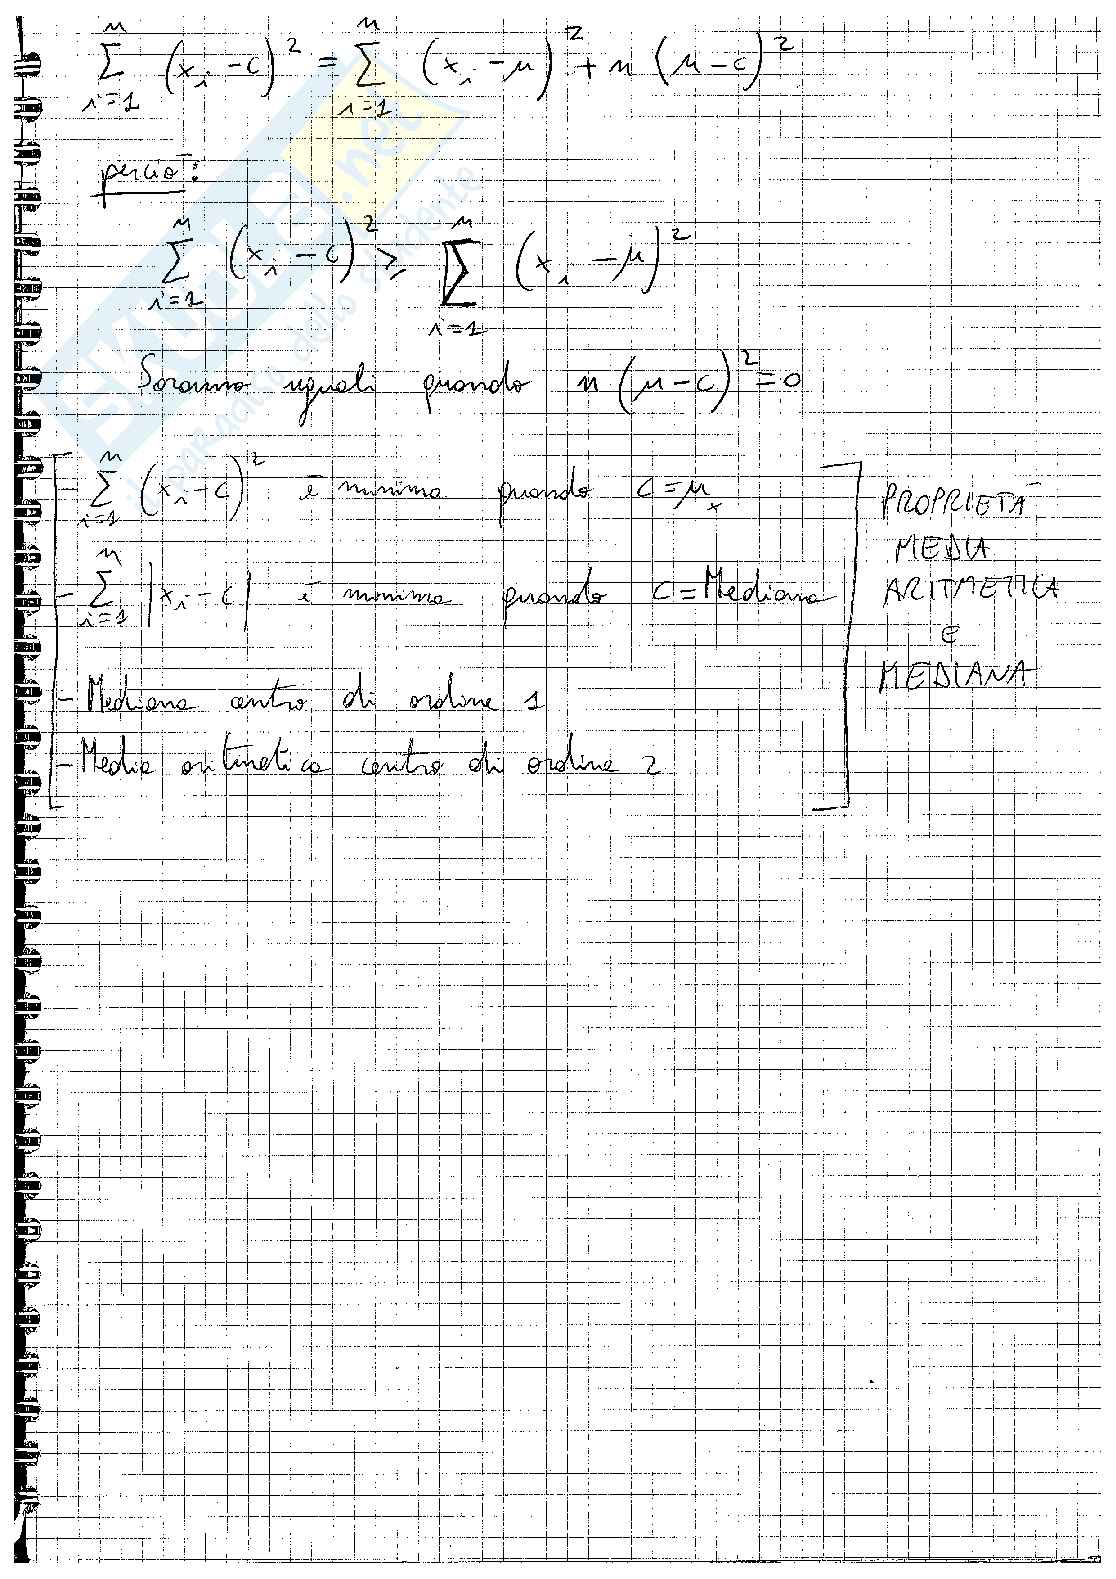 ∑_{i=1}^{n} (x_i - c)² = ∑_{i=1}^{n} (x_i - μ)² + n (μ - c)²
perciò:
∑_{i=1}^{n} (x_i - c)² ≥ ∑_{i=1}^{n} (x_i - μ)²
Saranno uguali quando n (μ - c)² = 0
- ∑_{i=1}^{n} (x_i - c)² è minima quando c = μ_x
- ∑_{i=1}^{n} |x_i - c| è minima quando c = Mediana
- Mediana centro di ordine 1
- Media aritmetica centro di ordine 2
PROPRIETÀ
MEDIA
ARITMETICA
E
MEDIANA
SKUOLA.net